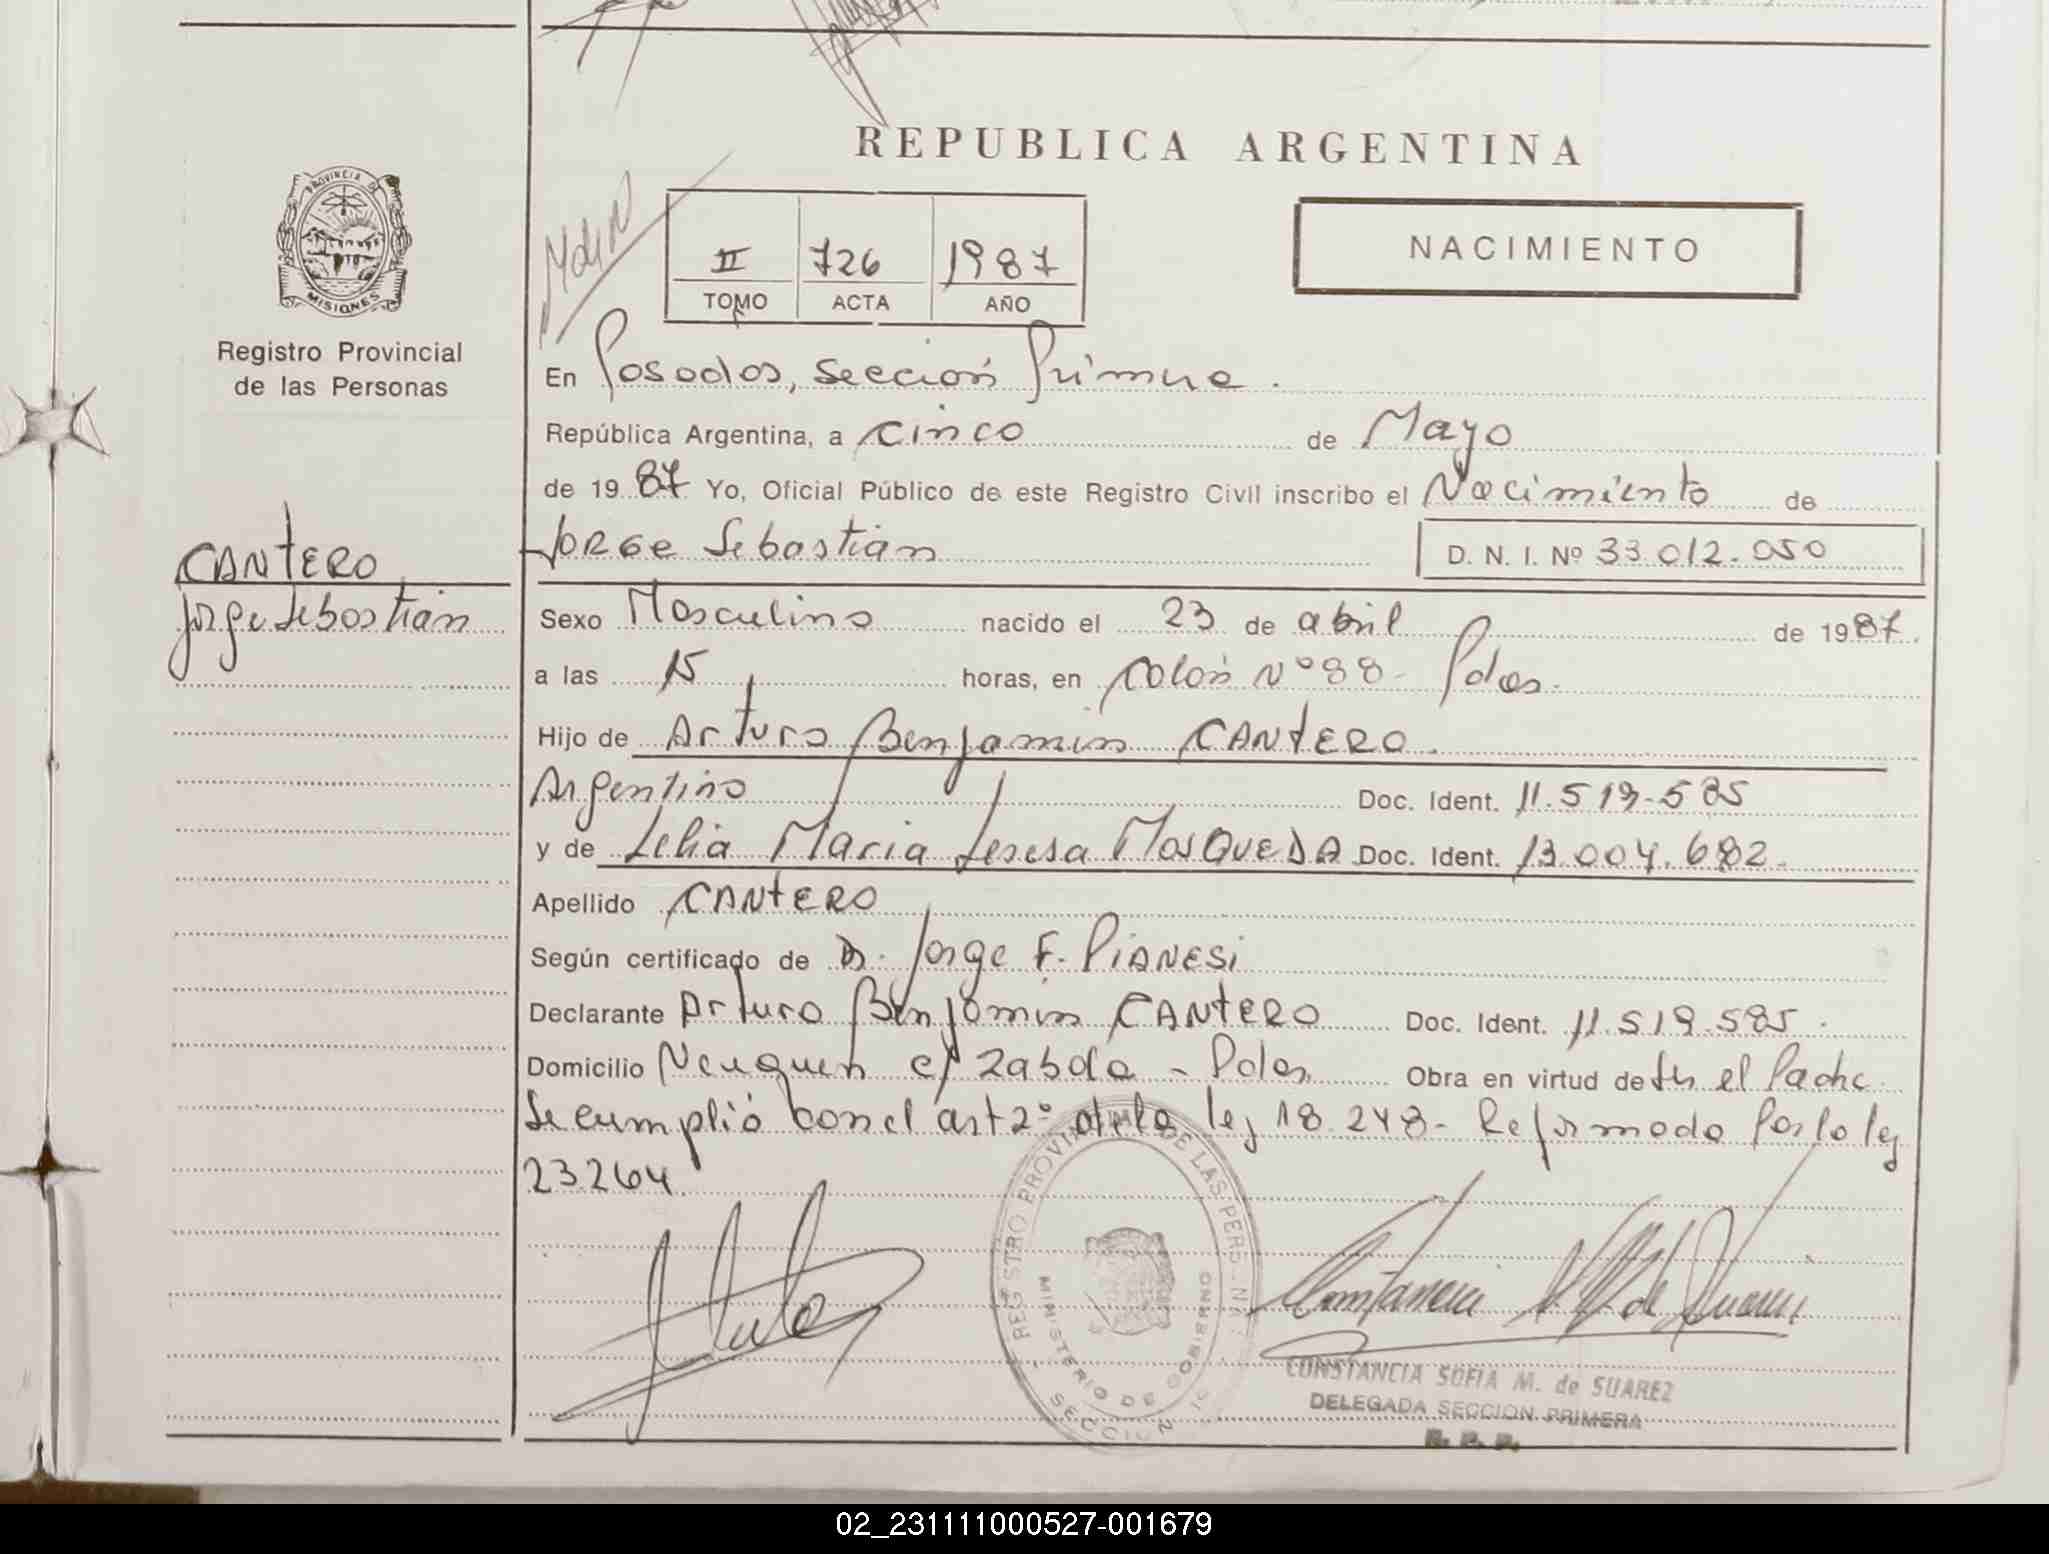 REPUBLICA ARGENTINA
PROVINCIA DE
MISIONES
Registro Provincial
de las Personas
II 726 1987
TOMO ACTA AÑO
NACIMIENTO
En Posadas, sección Primera.
República Argentina, a cinco de Mayo
de 1987 Yo, Oficial Público de este Registro Civil inscribo el Nacimiento de
Jorge Sebastián D. N. I. Nº 33.012.050
CANTERO
Jorge Sebastián
Sexo Masculino nacido el 23 de abril de 1987.
a las 15 horas, en Colón Nº 88 - Pdas.
Hijo de Arturo Benjamin CANTERO.
Argentino Doc. Ident. 11.519.585
y de Lelia Maria Teresa MosQUEDA Doc. Ident. 13.004.682.
Apellido CANTERO
Según certificado de Dr. Jorge F. PiANESi
Declarante Arturo Benjamin CANTERO Doc. Ident. 11.519.585.
Domicilio Neuquen c/ Zabala - Pdas Obra en virtud de ser el Padre
Se cumplió con el art 2º de la ley 18.248 - Reformada Por la ley
23.264
REGISTRO PROVINCIAL DE LAS PERS.
MINISTERIO DE GOBIERNO
SECCION 1º
CONSTANCIA SOFIA M. de SUAREZ
DELEGADA SECCION PRIMERA
R. P. P.
02_231111000527-001679